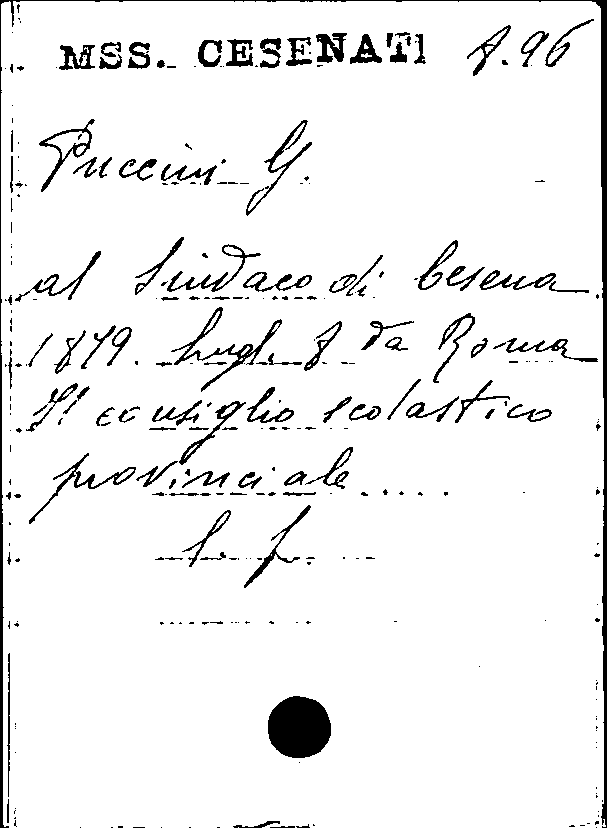 MSS. CESENATI f. 96
Puccini G.
al Sindaco di Cesena
1879. Lugl. 8 da Roma
Il consiglio scolastico
provinciale
l. f.